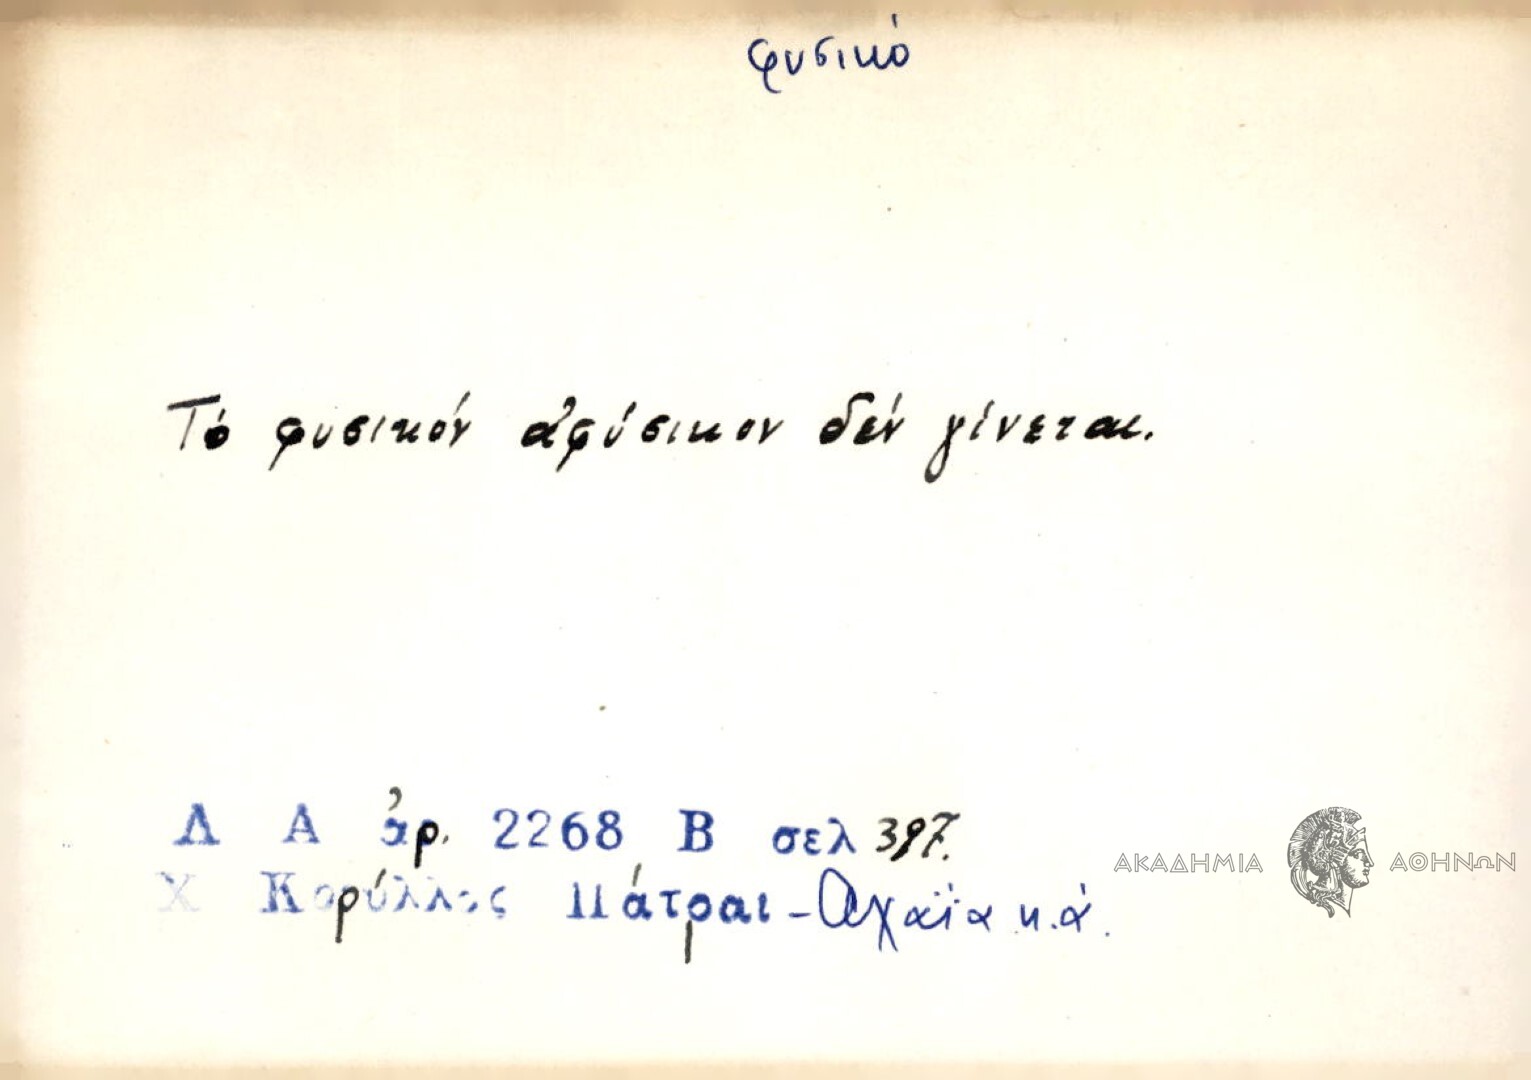 φυσικό
Τό φυσικόν ἀφύσικον δέν γίνεται.
Λ Α ἀρ. 2268 Β σελ 397.
Χ Κορύλλος Πάτραι - Ἀχαΐα κ.ἀ.
ΑΚΑΔΗΜΙΑ ΑΘΗΝΩΝ